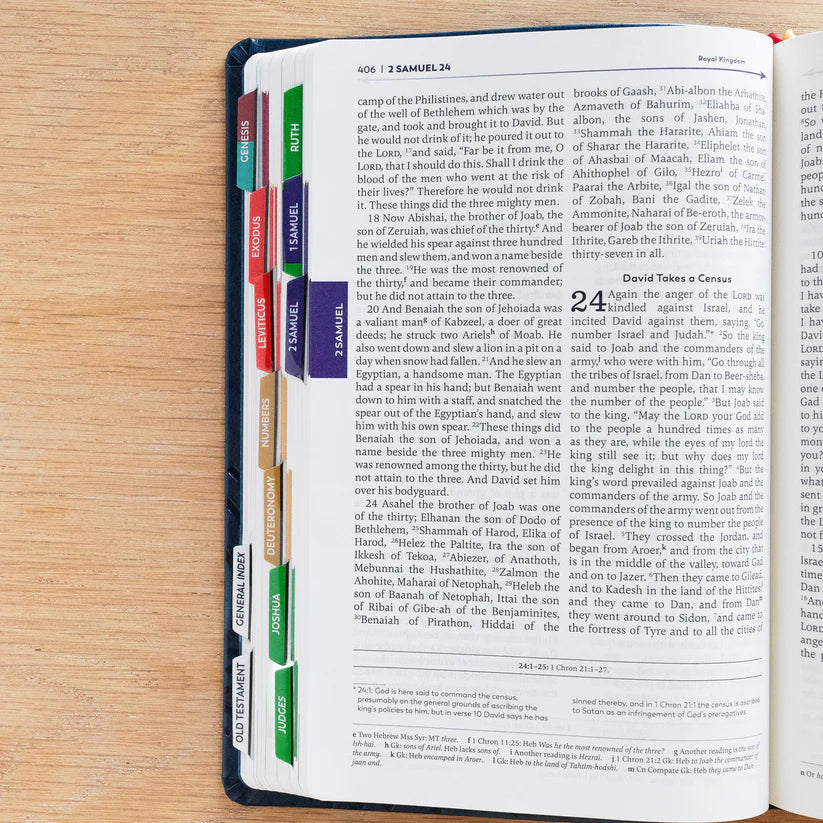 406 | 2 SAMUEL 24
Royal Kingdom
camp of the Philistines, and drew water out
of the well of Bethlehem which was by the
gate, and took and brought it to David. But
he would not drink of it; he poured it out to
the LORD, 17and said, “Far be it from me, O
LORD, that I should do this. Shall I drink the
blood of the men who went at the risk of
their lives?” Therefore he would not drink
it. These things did the three mighty men.
18 Now Abishai, the brother of Joab, the
son of Zeruiah, was chief of the thirty.e And
he wielded his spear against three hundred
men and slew them, and won a name beside
the three. 19He was the most renowned of
the thirty,f and became their commander;
but he did not attain to the three.
20 And Benaiah the son of Jehoiada was
a valiant mang of Kabzeel, a doer of great
deeds; he struck two Arielsh of Moab. He
also went down and slew a lion in a pit on a
day when snow had fallen. 21And he slew an
Egyptian, a handsome man. The Egyptian
had a spear in his hand; but Benaiah went
down to him with a staff, and snatched the
spear out of the Egyptian’s hand, and slew
him with his own spear. 22These things did
Benaiah the son of Jehoiada, and won a
name beside the three mighty men. 23He
was renowned among the thirty, but he did
not attain to the three. And David set him
over his bodyguard.
24 Asahel the brother of Joab was one
of the thirty; Elhanan the son of Dodo of
Bethlehem, 25Shammah of Harod, Elika of
Harod, 26Helez the Paltite, Ira the son of
Ikkesh of Tekoa, 27Abiezer, of Anathoth,
Mebunnai the Hushathite, 28Zalmon the
Ahohite, Maharai of Netophah, 29Heleb the
son of Baanah of Netophah, Ittai the son
of Ribai of Gibe-ah of the Benjaminites,
30Benaiah of Pirathon, Hiddai of the
brooks of Gaash, 31Abi-albon the Arbathite,
Azmaveth of Bahurim, 32Eliahba of Sha-
albon, the sons of Jashen, Jonathan,
33Shammah the Hararite, Ahiam the son
of Sharar the Hararite, 34Eliphelet the son
of Ahasbai of Maacah, Eliam the son of
Ahithophel of Gilo, 35Hezroi of Carmel,
Paarai the Arbite, 36Igal the son of Nathan
of Zobah, Bani the Gadite, 37Zelek the
Ammonite, Naharai of Be-eroth, the armor-
bearer of Joab the son of Zeruiah, 38Ira the
Ithrite, Gareb the Ithrite, 39Uriah the Hittite:
thirty-seven in all.
David Takes a Census
24 Again the anger of the LORD was
kindled against Israel, and he
incited David against them, saying, “Go,
number Israel and Judah.”* 2So the king
said to Joab and the commanders of the
army,j who were with him, “Go through all
the tribes of Israel, from Dan to Beer-sheba,
and number the people, that I may know
the number of the people.” 3But Joab said
to the king, “May the LORD your God add
to the people a hundred times as many
as they are, while the eyes of my lord the
king still see it; but why does my lord
the king delight in this thing?” 4But the
king’s word prevailed against Joab and the
commanders of the army. So Joab and the
commanders of the army went out from the
presence of the king to number the people
of Israel. 5They crossed the Jordan, and
began from Aroer,k and from the city that
is in the middle of the valley, toward Gad
and on to Jazer. 6Then they came to Gilead,
and to Kadesh in the land of the Hittites;l
and they came to Dan, and from Danm
they went around to Sidon, 7and came to
the fortress of Tyre and to all the cities of
24:1–25: 1 Chron 21:1–27.
* 24:1: God is here said to command the census,
presumably on the general grounds of ascribing the
king’s policies to him, but in verse 10 David says he has
sinned thereby, and in 1 Chron 21:1 the census is ascribed
to Satan as an infringement of God’s prerogatives.
e Two Hebrew Mss Syr: MT three. f 1 Chron 11:25: Heb Was he the most renowned of the three? g Another reading is the son of
Ish-hai. h Gk: sons of Ariel. Heb lacks sons of. i Another reading is Hezrai. j 1 Chron 21:2 Gk: Heb to Joab the commander of
the army. k Gk: Heb encamped in Aroer. l Gk: Heb to the land of Tahtim-hodshi. m Cn Compare Gk: Heb they came to Dan-
jaan and.
GENESIS
EXODUS
LEVITICUS
NUMBERS
DEUTERONOMY
JOSHUA
JUDGES
RUTH
1 SAMUEL
2 SAMUEL
2 SAMUEL
GENERAL INDEX
OLD TESTAMENT